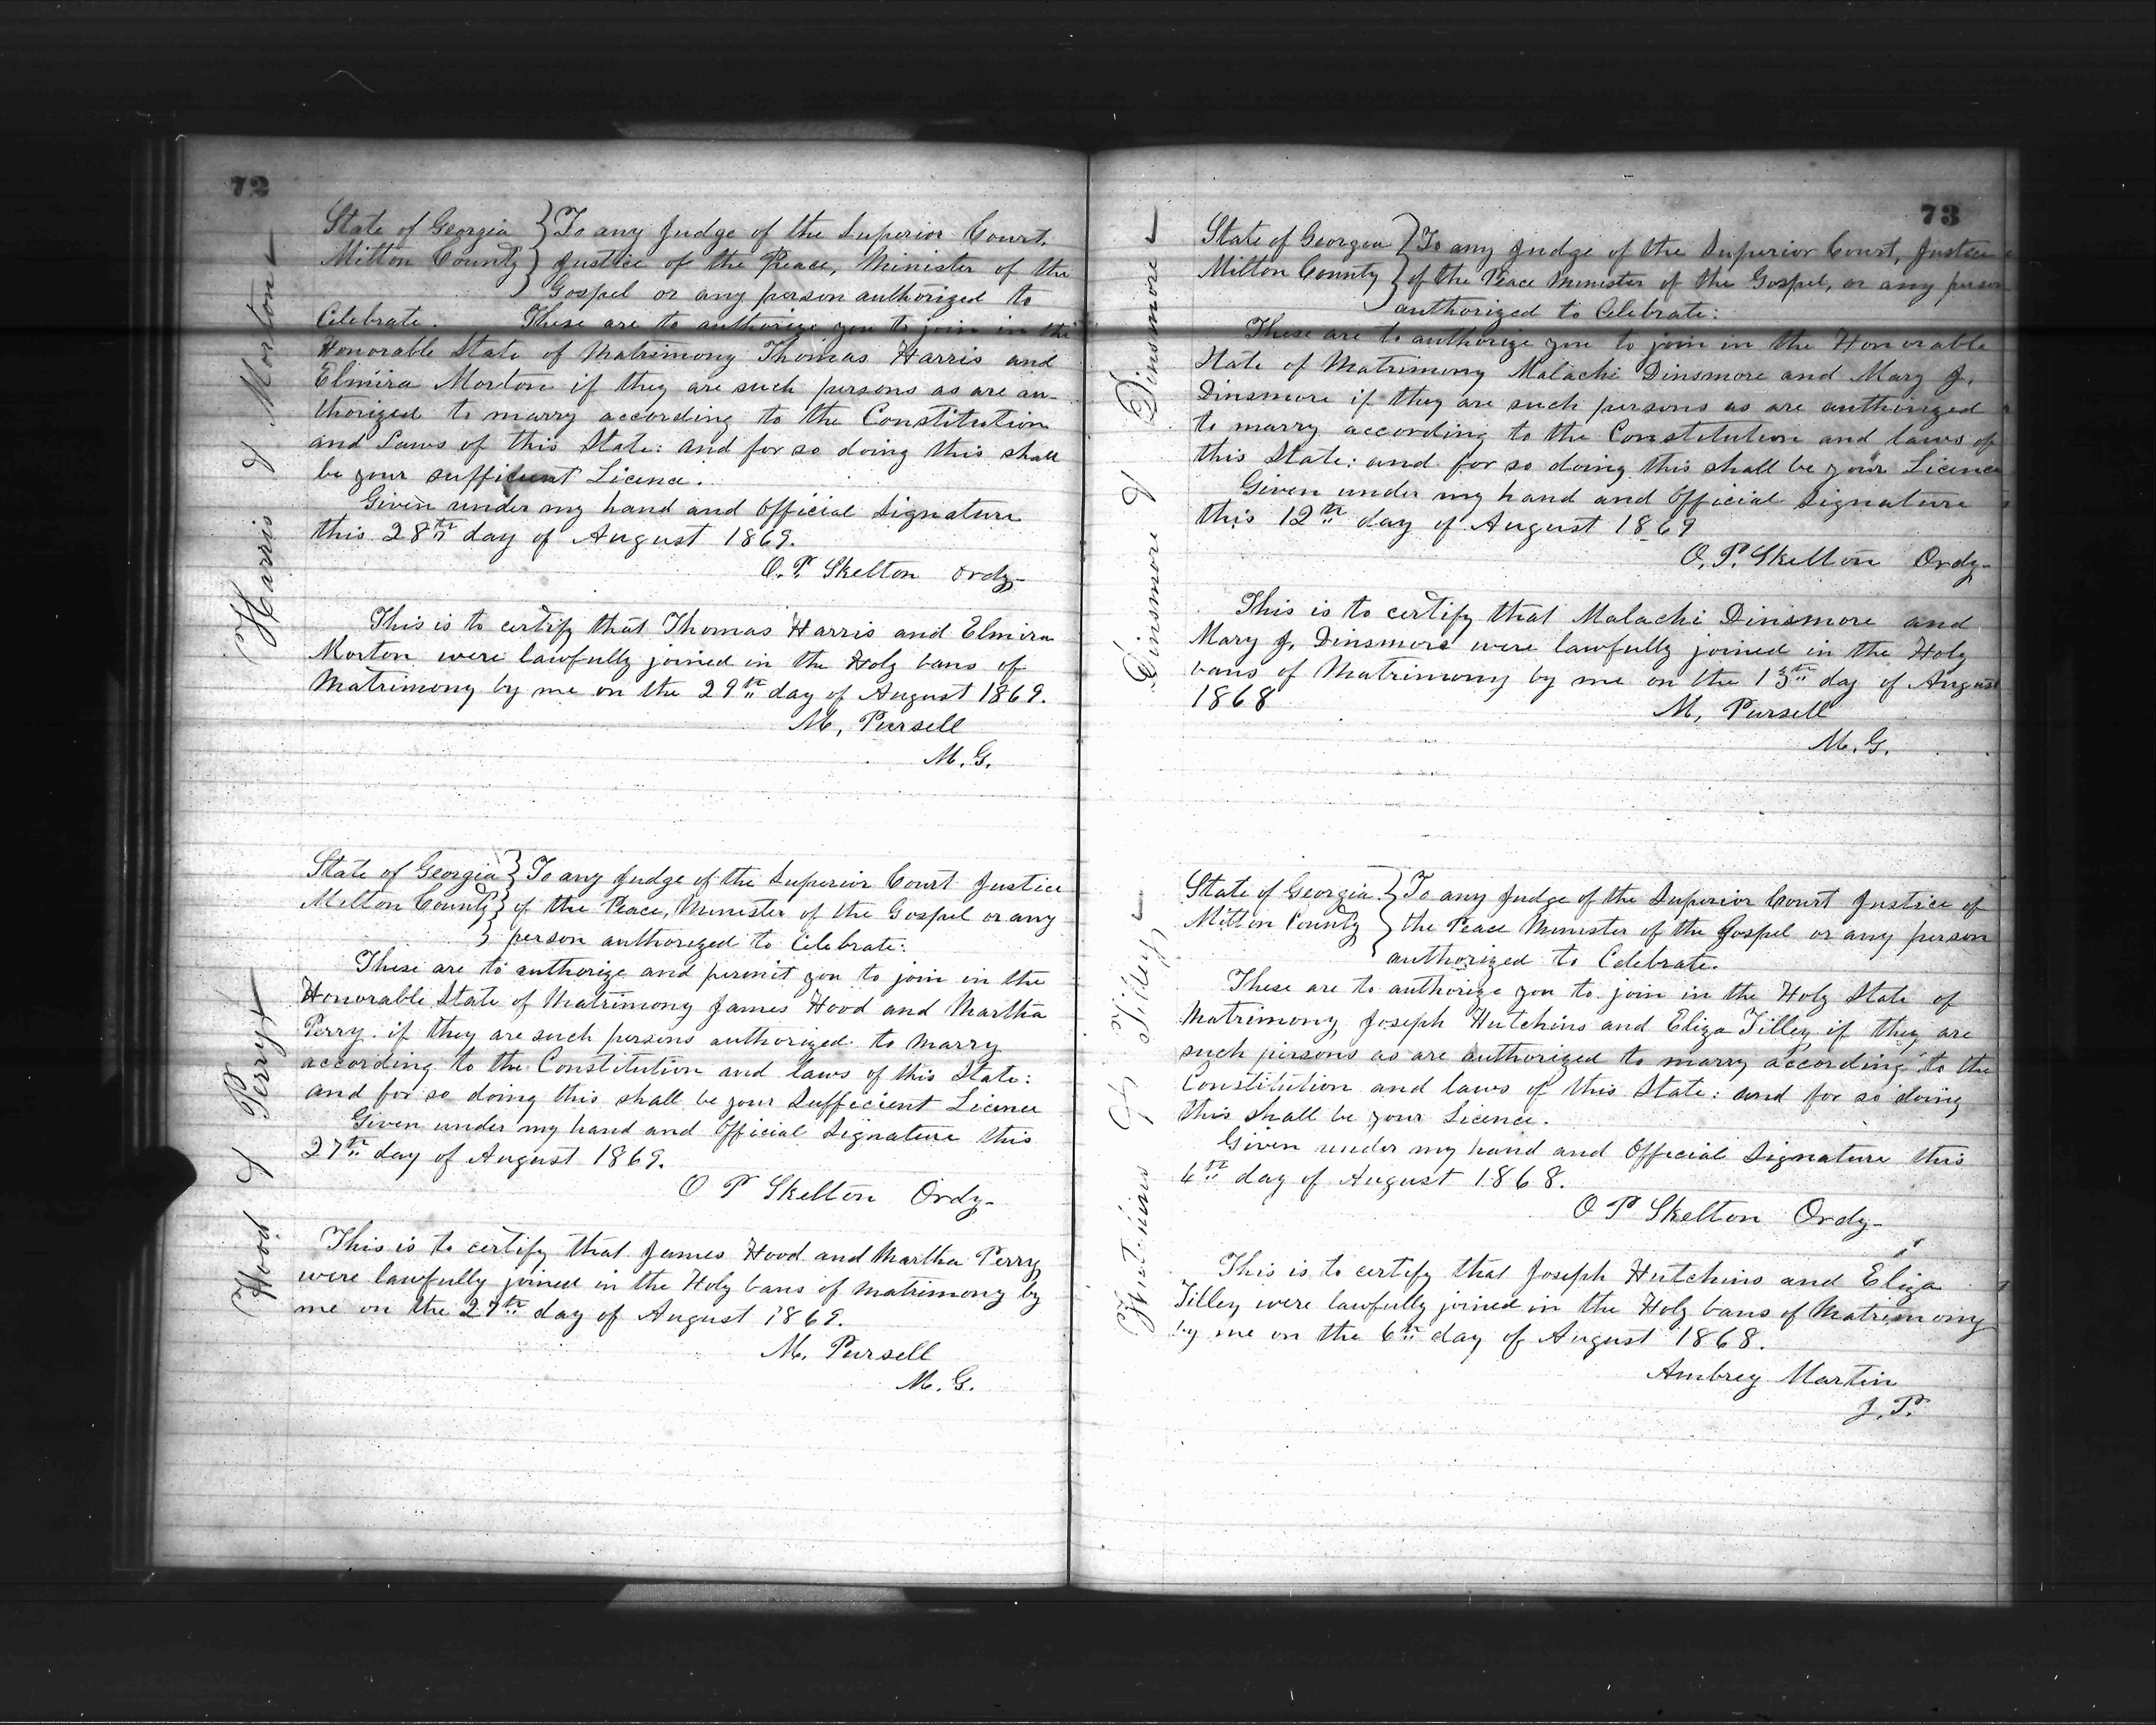 72
Harris & Morton
State of Georgia } To any Judge of the Superior Court,
Milton County } Justice of the Peace, Minister of the
} Gospel or any person authorized to
Celebrate. These are to authorize you to join in the
Honorable State of Matrimony Thomas Harris and
Elmira Morton if they are such persons as are au-
thorized to marry according to the Constitution
and Laws of this State: and for so doing this shall
be your sufficient Licence.
Given under my hand and official Signature
this 28th day of August 1869.
O. P. Skelton Ordy-
This is to certify that Thomas Harris and Elmira
Morton were lawfully joined in the Holy bans of
Matrimony by me on the 29th day of August 1869.
M, Pursell
M. G.
Hood & Perry
State of Georgia } To any Judge of the Superior Court Justice
Milton County } of the Peace, Minister of the Gospel or any
} person authorized to Celebrate:
These are to authorize and permit you to join in the
Honorable State of Matrimony James Hood and Martha
Perry if they are such persons authorized to marry
according to the Constitution and laws of this State:
and for so doing this shall be your Sufficient Licence
Given under my hand and Official Signature this
27th day of August 1869.
O P Skelton Ordy-
This is to certify that James Hood and Martha Perry
were lawfully joined in the Holy bans of matrimony by
me on the 27th day of August 1869.
M. Pursell
M. G.
73
Dinsmore & Dinsmore
State of Georgia } To any Judge of the Superior Court, Justice
Milton County } of the Peace Minister of the Gospel, or any person
authorized to Celebrate:
These are to authorize you to join in the Honorable
State of Matrimony Malachi Dinsmore and Mary J,
Dinsmore if they are such persons as are authorized
to marry according to the Constitution and laws of
this State: and for so doing this shall be your Licence
Given under my hand and Official Signature
this 12th day of August 1869
O. P. Skelton Ordy-
This is to certify that Malachi Dinsmore and
Mary J, Dinsmore were lawfully joined in the Holy
bans of Matrimony by me on the 13th day of August
1868 M, Pursell
M. G.
Hutchins & Tilley
State of Georgia } To any Judge of the Superior Court Justice of
Milton County } the Peace Minister of the Gospel or any person
authorized to Celebrate.
These are to authorize you to join in the Holy State of
Matrimony, Joseph Hutchins and Eliza Tilley, if they are
such persons as are authorized to marry according to the
Constitution and laws of this State: and for so doing
this shall be your Licence.
Given under my hand and Official Signature this
6th day of August 1868.
O P Skelton Ordy-
This is to certify that Joseph Hutchins and Eliza
Tilley were lawfully joined in the Holy bans of Matrimony
by me on the 6th day of August 1868.
Ambrey Martin
J. P.